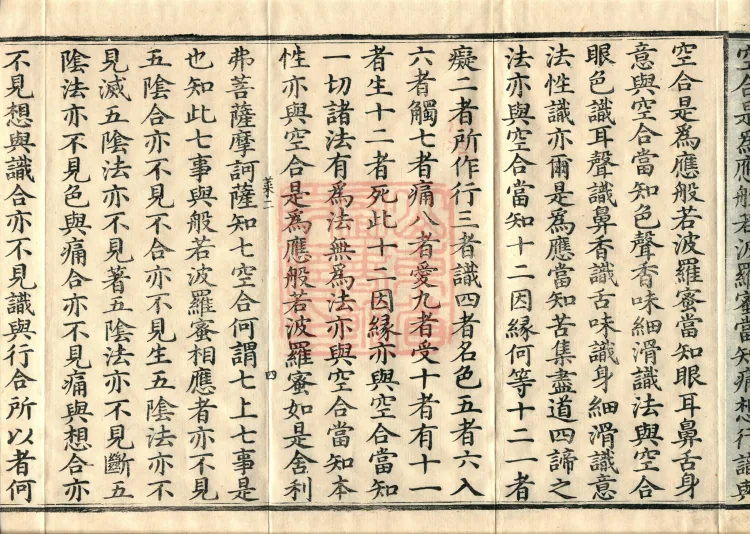 空合是爲應般若波羅蜜當知痛想行識與
空合是爲應般若波羅蜜當知眼耳鼻舌身
意與空合當知色聲香味細滑識法與空合
眼色識耳聲識鼻香識舌味識身細滑識意
法性識亦爾是爲應當知苦集盡道四諦之
法亦與空合當知十二因縁何等十二一者
癡二者所作行三者識四者名色五者六入
六者觸七者痛八者愛九者受十者有十一
者生十二者死此十二因縁亦與空合當知
一切諸法有爲法無爲法亦與空合當知本
性亦與空合是爲應般若波羅蜜如是舍利
菜二
四
弗菩薩摩訶薩知七空合何謂七上七事是
也知此七事與般若波羅蜜相應者亦不見
五陰合亦不見不合亦不見生五陰法亦不
見滅五陰法亦不見著五陰法亦不見斷五
陰法亦不見色與痛合亦不見痛與想合亦
不見想與識合亦不見識與行合所以者何